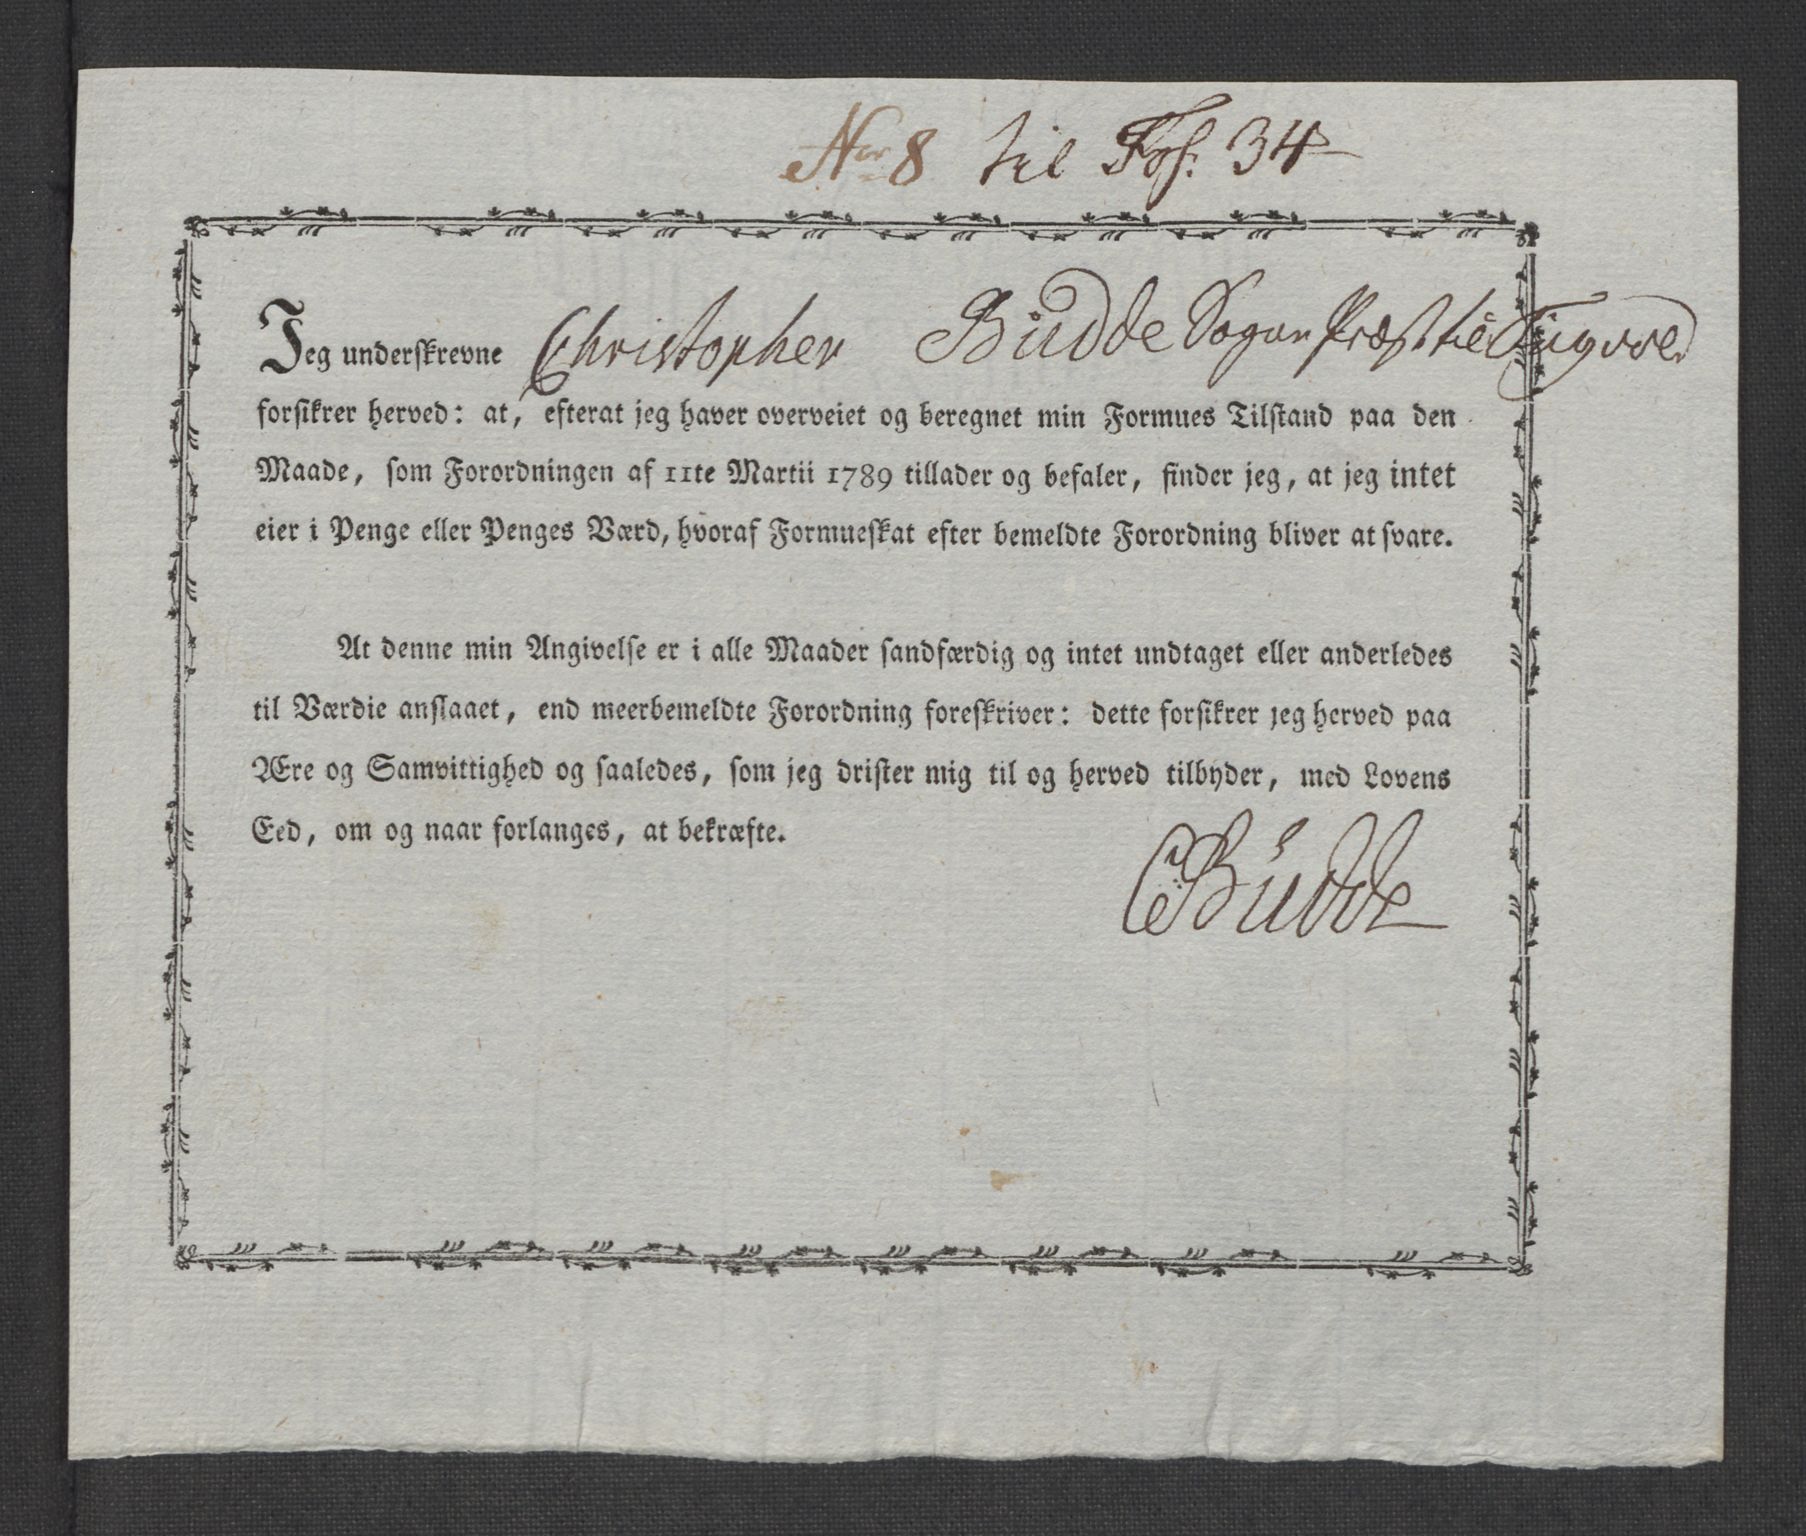 Nr 8 til Fol. 34
Jeg underskrevne Christopher Budde Sogne Præst til Tingvold
forsikrer herved: at, efterat jeg haver overveiet og beregnet min Formues Tilstand paa den
Maade, som Forordningen af 11te Martii 1789 tillader og befaler, finder jeg, at jeg intet
eier i Penge eller Penges Værd, hvoraf Formueskat efter bemeldte Forordning bliver at svare.
At denne min Angivelse er i alle Maader sandfærdig og intet undtaget eller anderledes
til Værdie anslaaet, end meerbemeldte Forordning foreskriver: dette forsikrer jeg herved paa
Ære og Samvittighed og saaledes, som jeg drister mig til og herved tilbyder, med Lovens
Eed, om og naar forlanges, at bekræfte.
CBudde